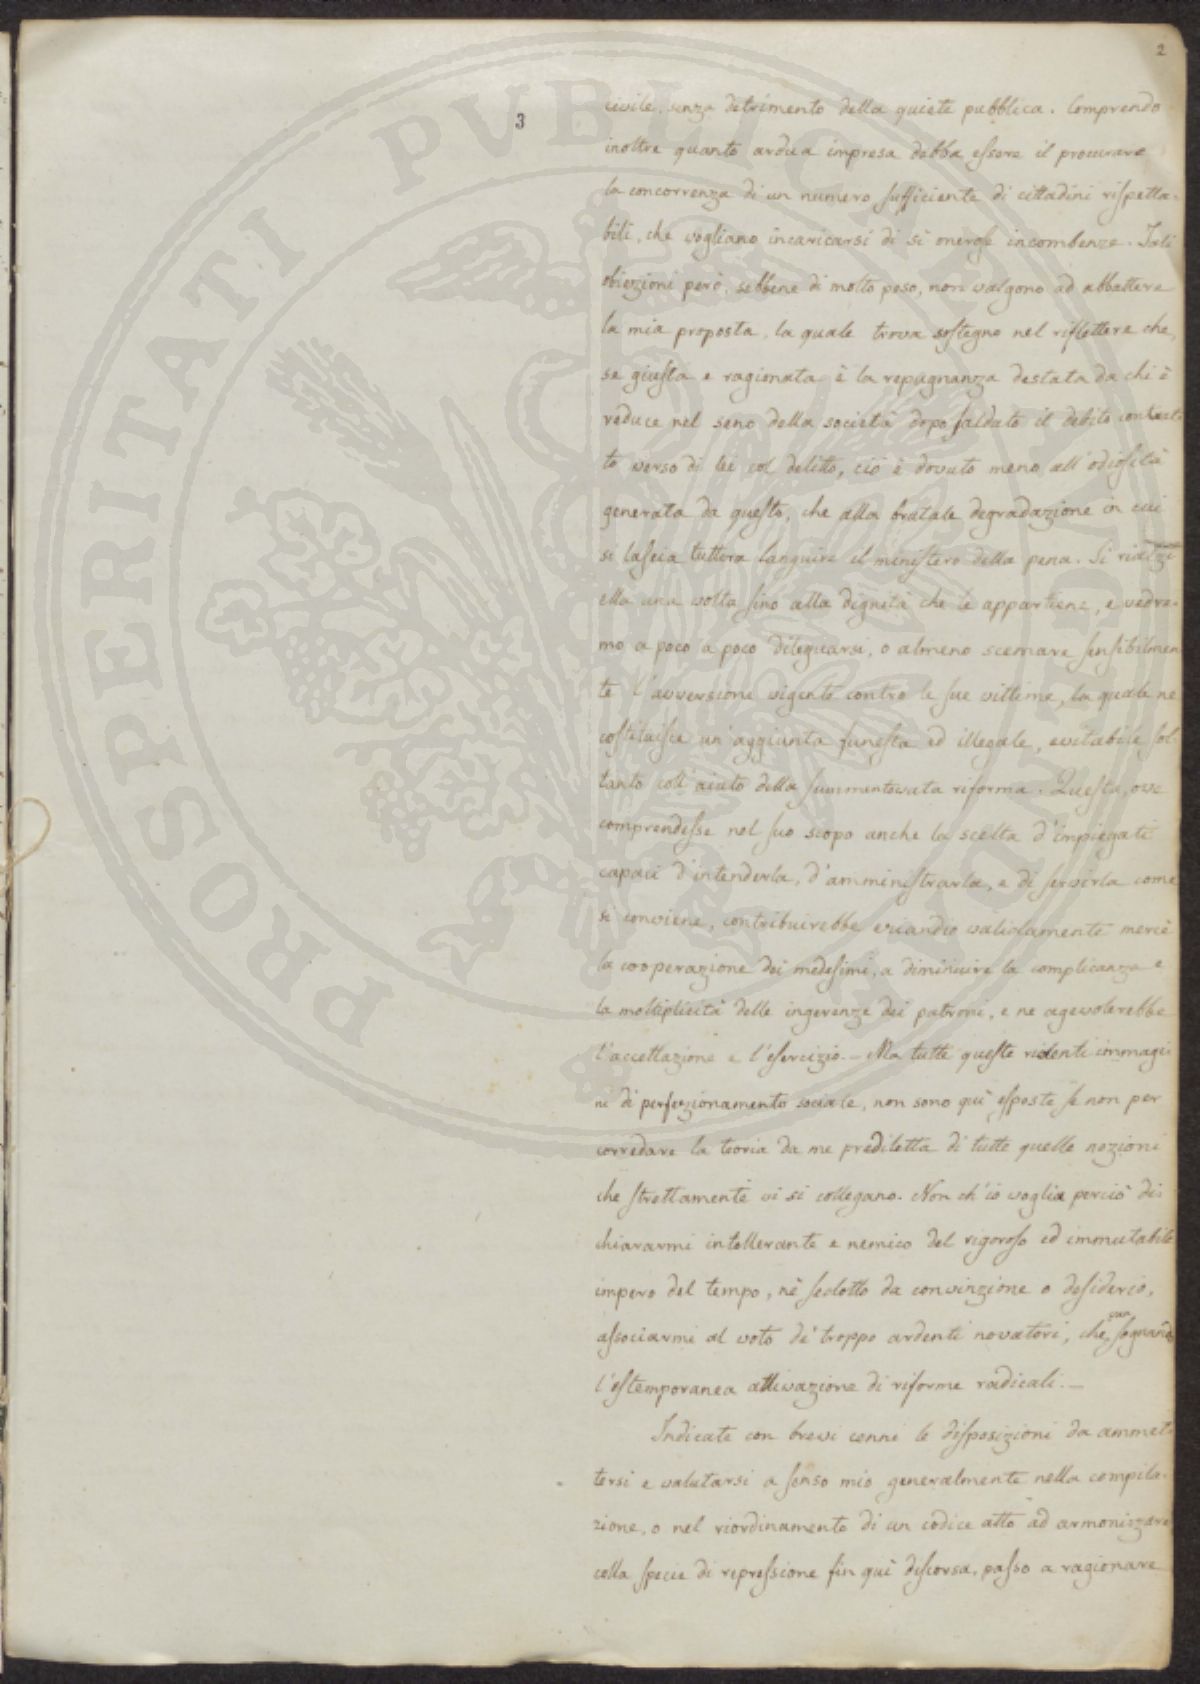 2
3
civile, senza detrimento della quiete pubblica. Comprendo
inoltre quanto ardua impresa debba essere il procurare
la concorrenza di un numero sufficiente di cittadini rispetta-
bili, che vogliano incaricarsi di sì onerose incombenze. Tali
obiezioni però, sebbene di molto peso, non valgono ad abbattere
la mia proposta, la quale trova sostegno nel riflettere che,
se giusta e ragionata è la repugnanza destata da chi è
reduce nel seno della società dopo saldato il debito contrat-
to verso di lei col delitto, ciò è dovuto meno all'odiosità
generata da questo, che alla brutale degradazione in cui
si lascia tuttora languire il ministero della pena. Si rialzi
ella una volta sino alla dignità che le appartiene, e vedre-
mo a poco a poco dileguarsi, o almeno scemare sensibilmen-
te l'avversione vigente contro le sue vittime, la quale ne
costituisce un'aggiunta funesta ed illegale, evitabile sol-
tanto coll'aiuto della summentovata riforma. Questa, ove
comprendesse nel suo scopo anche la scelta d'impiegati
capaci d'intenderla, d'amministrarla, e di servirla come
si conviene, contribuirebbe eziandio validamente mercè
la cooperazione dei medesimi, a diminuire la complicanza e
la moltiplicità delle ingerenze dei patroni, e ne agevolerebbe
l'accettazione e l'esercizio. – Ma tutte queste ridenti immagi-
ni di perfezionamento sociale, non sono quì esposte se non per
corredare la teoria da me prediletta di tutte quelle nozioni
che strettamente vi si collegano. Non ch'io voglia perciò di-
chiararmi intollerante e nemico del rigoroso ed immutabile
impero del tempo, nè sedotto da convinzione o desiderio,
associarmi al voto di troppo ardenti novatori, che van sognando
l'estemporanea attivazione di riforme radicali. –
Indicate con brevi cenni le disposizioni da ammet-
tersi e valutarsi a senso mio generalmente nella compila-
zione, o nel riordinamento di un codice atto ad armonizzare
colla specie di repressione fin quì discorsa, passo a ragionare
PROSPERITATI PUBLICAE AUGENDAE